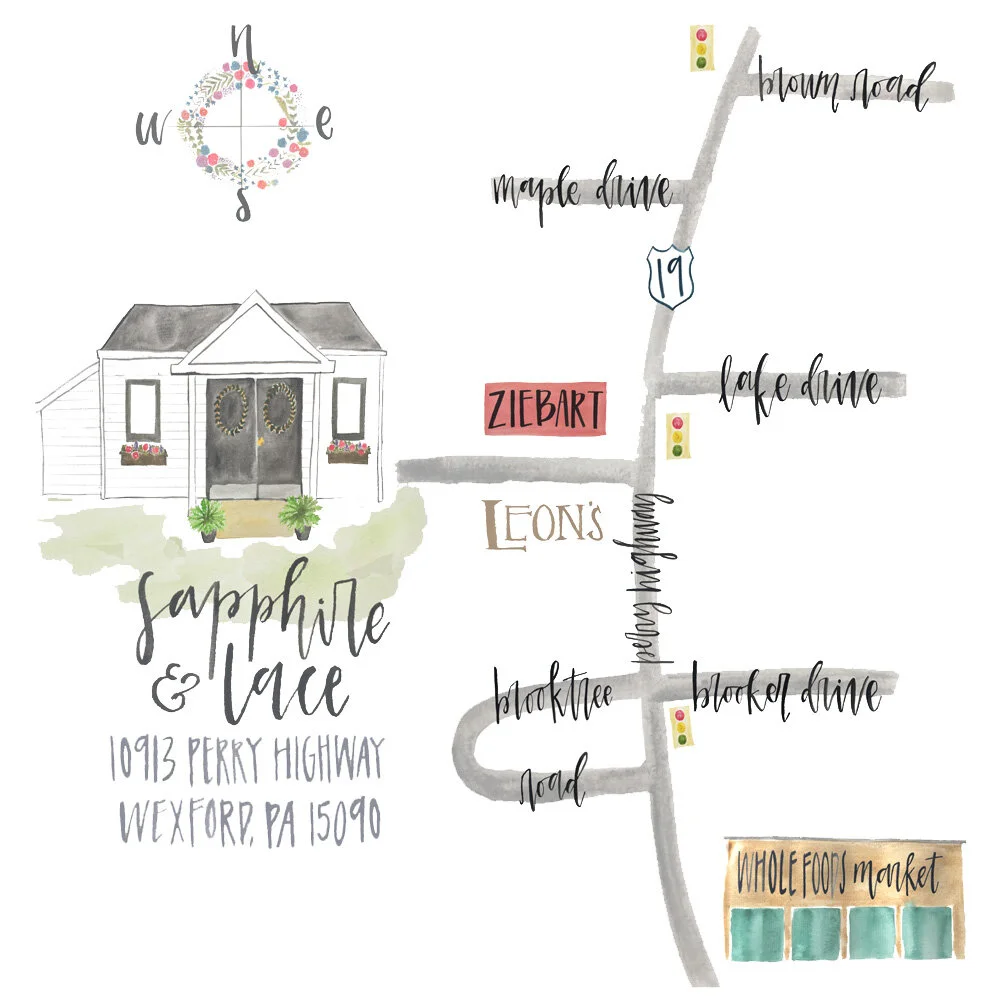 n
w e
s
brown road
maple drive
19
lake drive
ZIEBART
LEON'S
perry highway
sapphire
& lace
10913 PERRY HIGHWAY
WEXFORD, PA 15090
brooktree
road
brooker drive
WHOLE FOODS market